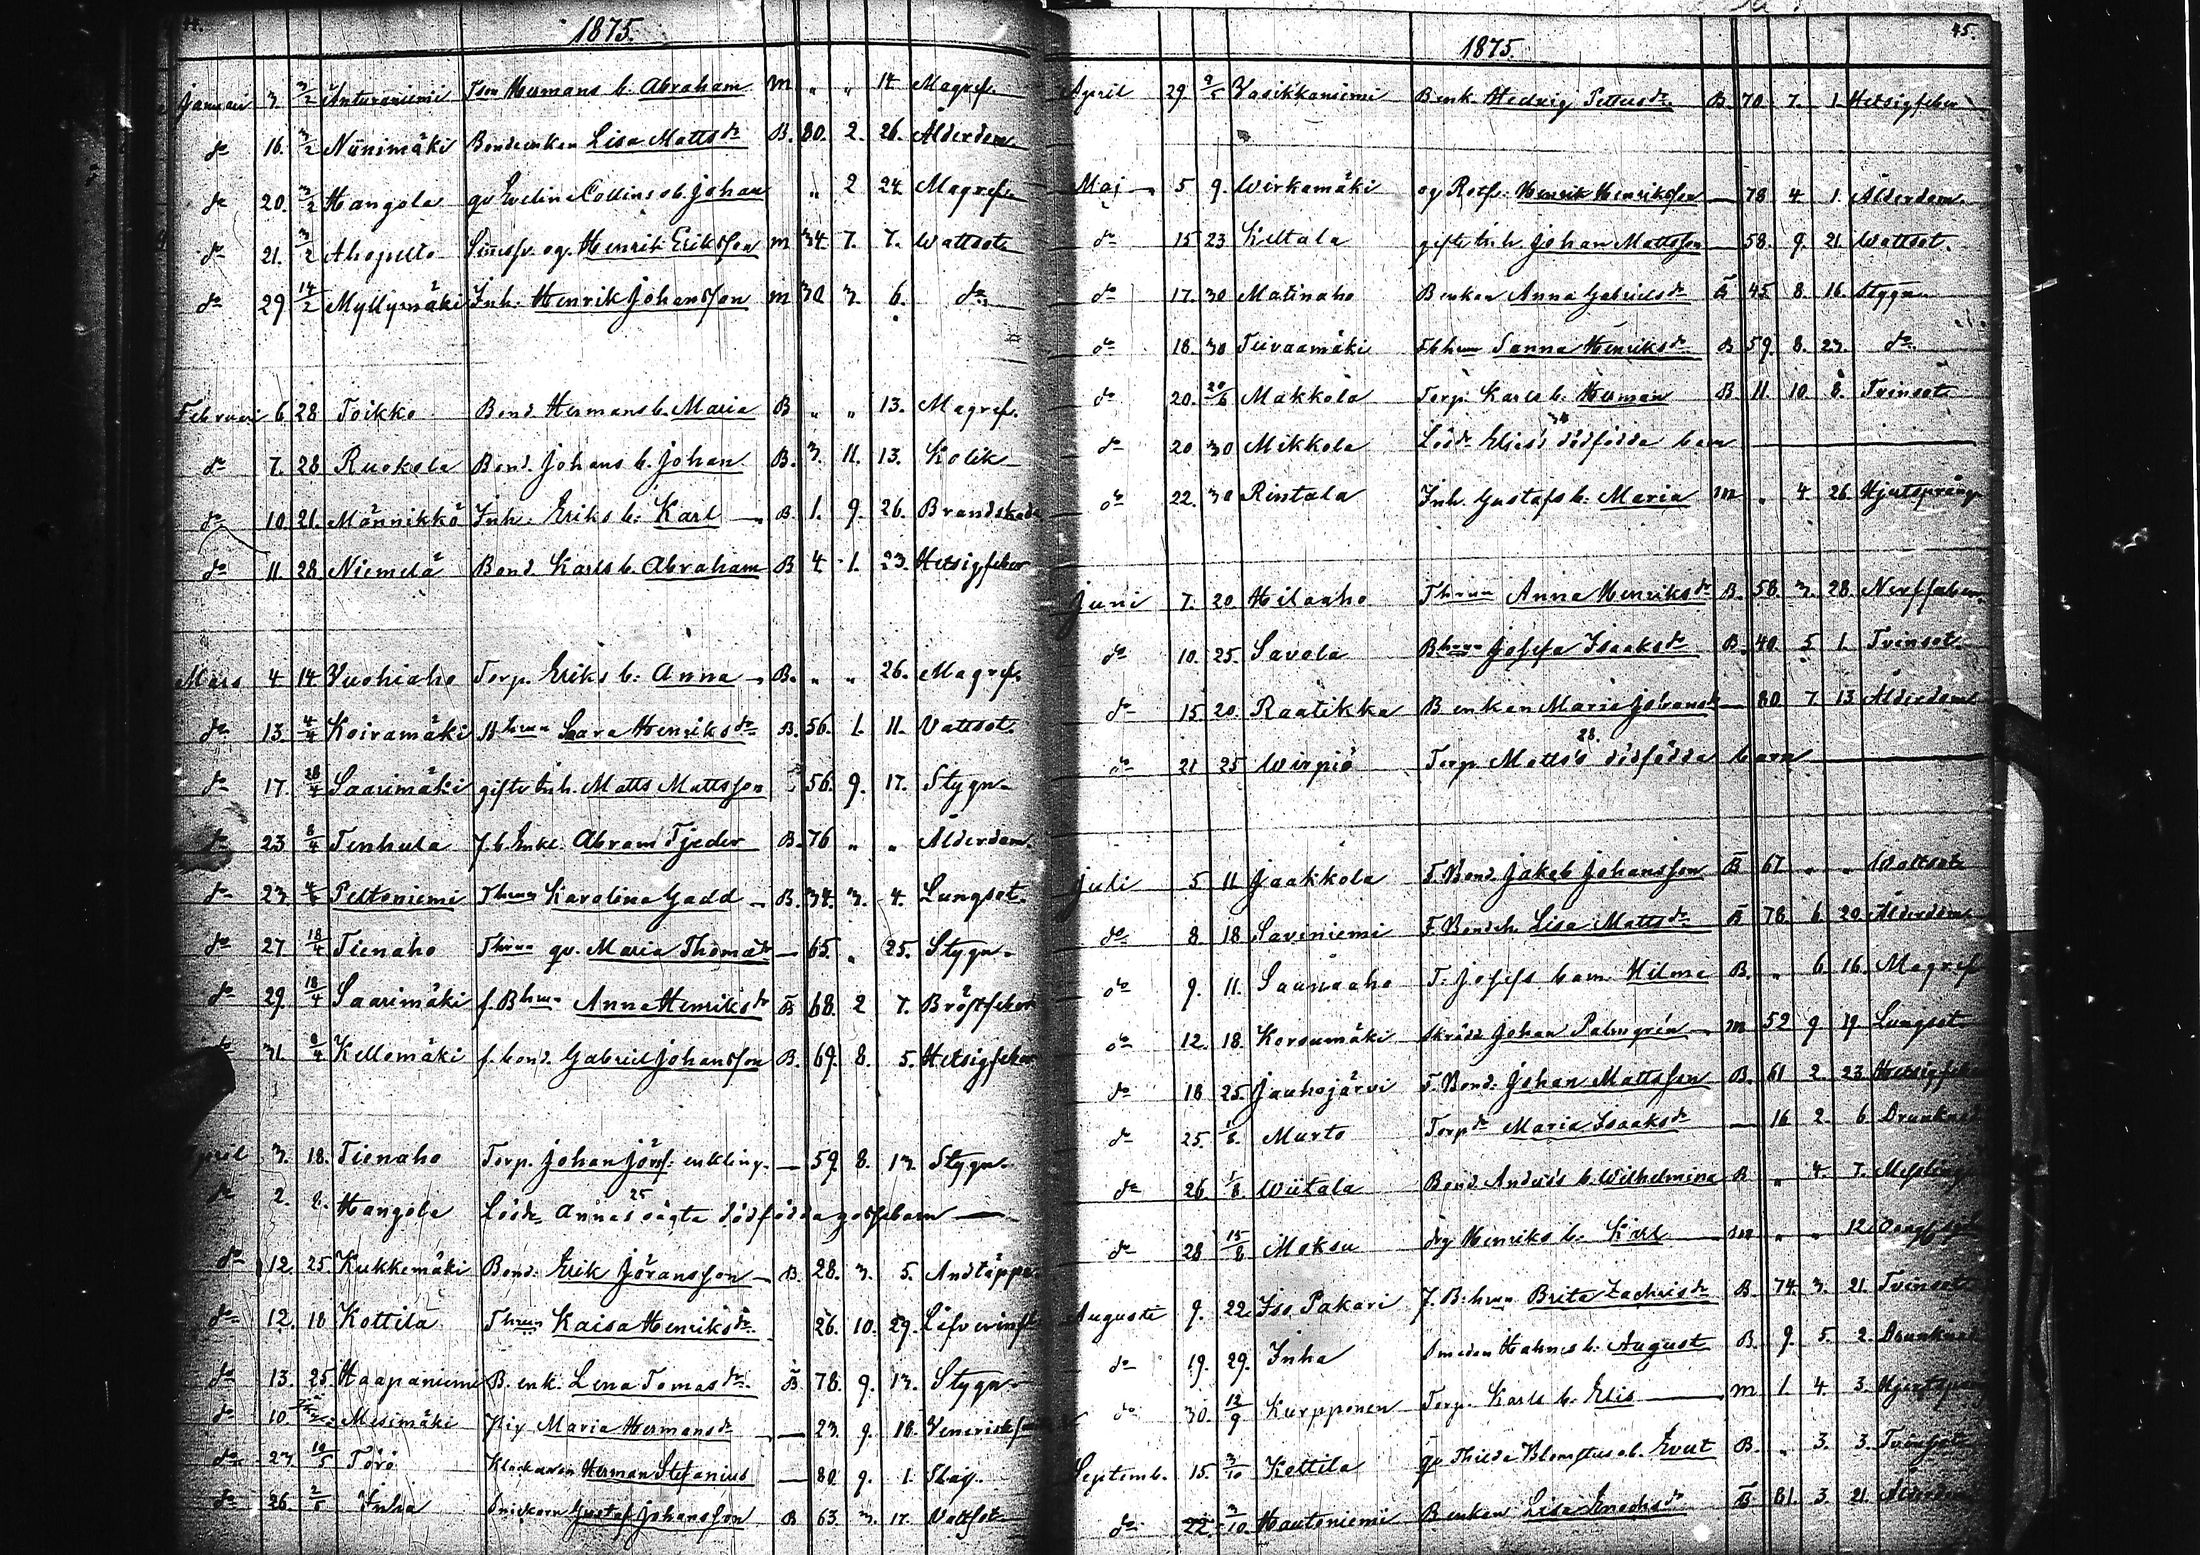 44.
1875.
Januari 3. 3/2 Anturaniemi Tson Hermans b. Abraham m „ „ 14 Magref.
do 16. 3/2 Niinimäki Bondeenkan Lisa Mattsdr B. 80. 2. 26. Ålderdom.
do 20. 3/2 Hangola qv Evelina Collins ob. Johan „ 2 24. Magref.
do 21. 3/2 Ahopelto og. Henrik Eriksson m 34. 7. 7. Wattsot
do 29 14/2 Myllymäki Inh. Henrik Johansson m 30 3. 6. do
Februari 6. 28 Toikko Bond. Hermans b. Maria B „ „ 13. Magref.
do 7. 28 Ruokola Bond. Johans b. Johan B. 3. 11. 13. Kolik
do 10 21. Männikkö Inh. Eriks b. Karl B 1. 9. 26. Brandskada
do 11 28 Niemelä Bond. Karls b. Abraham B 4. 1. 23. Hetsigfeber
Mars 4 14 Vuohiaho Torp. Eriks b. Anna B. „ „ 26. Magref.
do 13. 4/4 Koiramäki Bhrun Sara Henriksdr B. 56. 1. 11. Vattsot.
do 17. 28/4 Saarimäki gifte Inh. Matts Mattsson 56. 9. 17. Stygn
do 23 8/4 Tenhula f. b. Enkl. Abram Tjeder B. 76 „ „ Ålderdom.
do 23. 4/4 Peltoniemi Thrun Karolina Gadd B. 34. 3. 4. Lungsot.
do 27. 18/4 Tienaho Thrun qv. Maria Thomadr 65. „ 25. Stygn
do 29. 18/4 Saarimäki f. Bhrun Anna Henriksdr B 68. 2 7. Bröstfeber
31. 8/4 Kellomäki f. bond. Gabriel Johansson B. 69. 8. 5. Hetsigfeber
April 3. 18. Tienaho Torp. Johan Jöransf: enkling 59. 8. 13. Stygn
do 2. 8. Hangola Lösdr Annas 25 oägta dödfödda gossebarn
do 12. 25. Kukkemäki Bond. Erik Jöransson B. 28. 3. 5. Andtäppa
do 12. 18 Kottila Thrun Kaisa Henriksdr 26. 10. 29. Lefverinfl
do 13. 25. Haapaniemi B. enk. Lena Tomasdr B 78. 9. 13. Stygn
do 10 Mesimäki Pig Maria Hermansdr 23. 9. 18. Venerisk
do 27. 10/5 Törö Klockaren Herman Stefanius 80. 9. 1. Slag.
do 26. 2/5 Inha Snickarn Gustaf Johansson B 63. 3. 17. Vattsot
45.
1875.
April 29 9/5 Vasikkaniemi Benk. Hedvig Pettersdr B 70 7. 1. Hetsigfeber
Maj 5 9. Wirkamäki og Rotf. Henrik Henriksson 78 4 1. Ålderdom
do 15 23 Keltala gifte Inh. Johan Mattsson 58. 9. 21. Wattsot.
do 17. 30 Matinaho B enkan Anna Gabrielsdr B 45 8. 16. Stygn
do 18. 30 Teivaamäki Sanna Henriksdr B 59. 8. 23. do
do 20. 20/6 Makkola Torp. Karls b. Herman B. 11. 10. 8. Tvinsot
do 20 30 Mikkola Lösdr Elisas 34 dödfödda barn
do 22. 30 Rintala Inh. Gustafs b. Maria m „ 4 26 Hjertsprång
Juni 7. 20 Hilaaho Thrun Anna Henriksdr B. 58. 3. 28. Nerffeber
do 10. 25. Savola Bhrun Josefa Isaaksdr B. 40. 5 1. Tvinsot
do 15 20. Raatikka B enkan Maria Johansdr 80 7. 13 Ålderdom
do 21 25 Wirpiö Torp. Matts's 28. dödfödda barn
Juli 5 11 Jaakkola F. Bond. Jakob Johansson B 67 „ „ Wattsot
do 8 18 Saveniemi F. Bondeh. Lisa Mattsdr B 78. 6 20. Ålderdom
do 9. 11. Saunaaho T. Josefs barn Hilma B. „ 6 16. Magref
do 12. 18. Korsumäki Skrädd Johan Palmgrén m 52 9 19 Lungsot
do 18 25. Jauhojärvi F. Bond. Johan Mattsson B. 61 2 23 Hetsigfeber
do 25. 1/8. Murto Torpdr Maria Isaaksdr 16 2. 6. Drunknad
do 26. 1/8 Wiitala Bond. Andrés b. Wilhelmina B „ 4. 7. Mesling
do 28 15/8 Moksu drg Henriks b. Karl m „ „ 12.
Augusti 9. 22. Iso Pakari f. B. hrun Brita Zachrisdr B. 74. 3. 21. Tvinsot
do 19. 29. Inha Smeden Hahns b. August B. 9. 5. 2. Drunknad
do 30. 12/9 Kurpponen Torp. Karls b. Elis m 1. 4. 3.
Septemb. 15. 3/10 Kottila qv Thilda Blomsters ob. Evert B. „ 3. 3. Tvinsot
do 22. 3/10. Hautoniemi B enkan Lisa Enochsdr B 81. 3. 21. Ålderdom